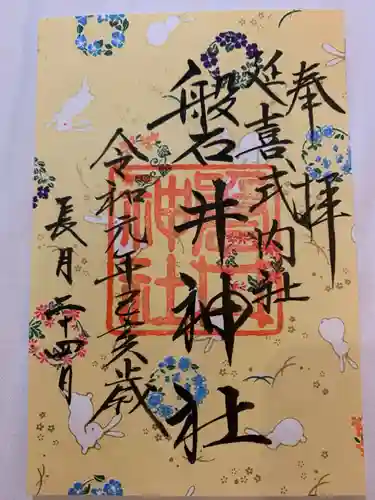 奉拝
延喜式内社
磐石井神社
令和元年己亥歳
長月二十四日